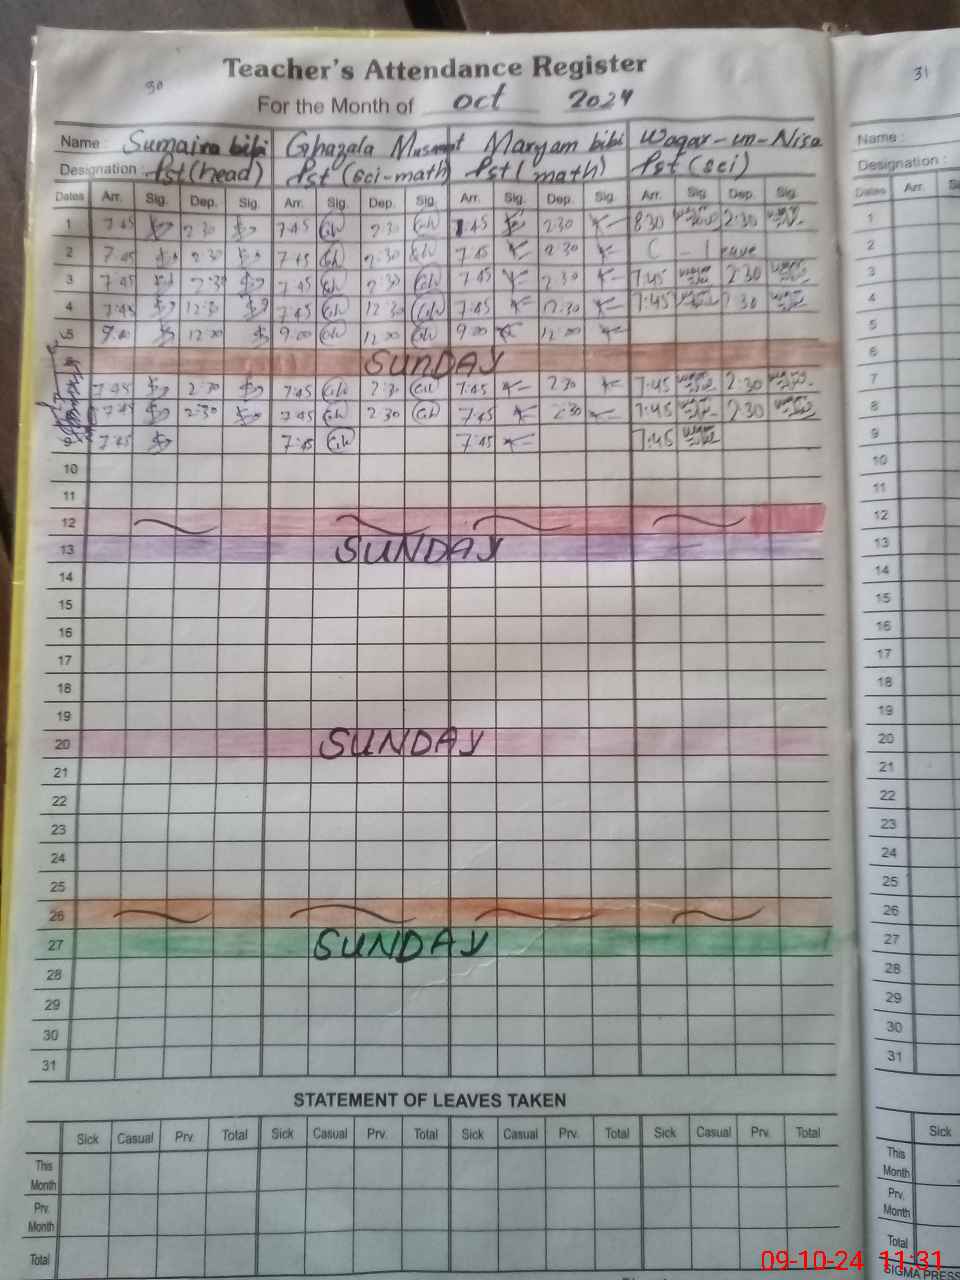 30
Teacher's Attendance Register
For the Month of oct 2024
Name : Sumaira bibi Ghazala Musarrat Maryam bibi Waqar-un-Nisa
Designation : Pst(head) Pst (sci-math) Pst (math) Pst (sci)
Dates Arr. Sig. Dep. Sig. Arr. Sig. Dep. Sig. Arr. Sig. Dep. Sig. Arr. Sig. Dep. Sig.
1 7:45 2:30 7:45 2:30 7:45 2:30 8:30 2:30
2 7:45 2:30 7:45 2:30 7:45 2:30 C - leave
3 7:45 2:30 7:45 2:30 7:45 2:30 7:45 2:30
4 7:45 12:30 7:45 12:30 7:45 12:30 7:45
5 9:00 12:00 9:00 12:00 9:00 12:00
6 SUNDAY
7 7:45 2:30 7:45 2:30 7:45 2:30 7:45 2:30
8 7:45 2:30 7:45 2:30 7:45 2:30 7:45 2:30
9 7:45 7:45 7:45 7:45
10
11
12
13 SUNDAY
14
15
16
17
18
19
20 SUNDAY
21
22
23
24
25
26
27 SUNDAY
28
29
30
31
STATEMENT OF LEAVES TAKEN
Sick Casual Prv. Total Sick Casual Prv. Total Sick Casual Prv. Total Sick Casual Prv. Total
This Month
Prv. Month
Total
31
Name :
Designation :
Dates Arr.
1
2
3
4
5
6
7
8
9
10
11
12
13
14
15
16
17
18
19
20
21
22
23
24
25
26
27
28
29
30
31
Sick
This Month
Prv. Month
Total
SIGMA PRESS
09-10-24 11:31